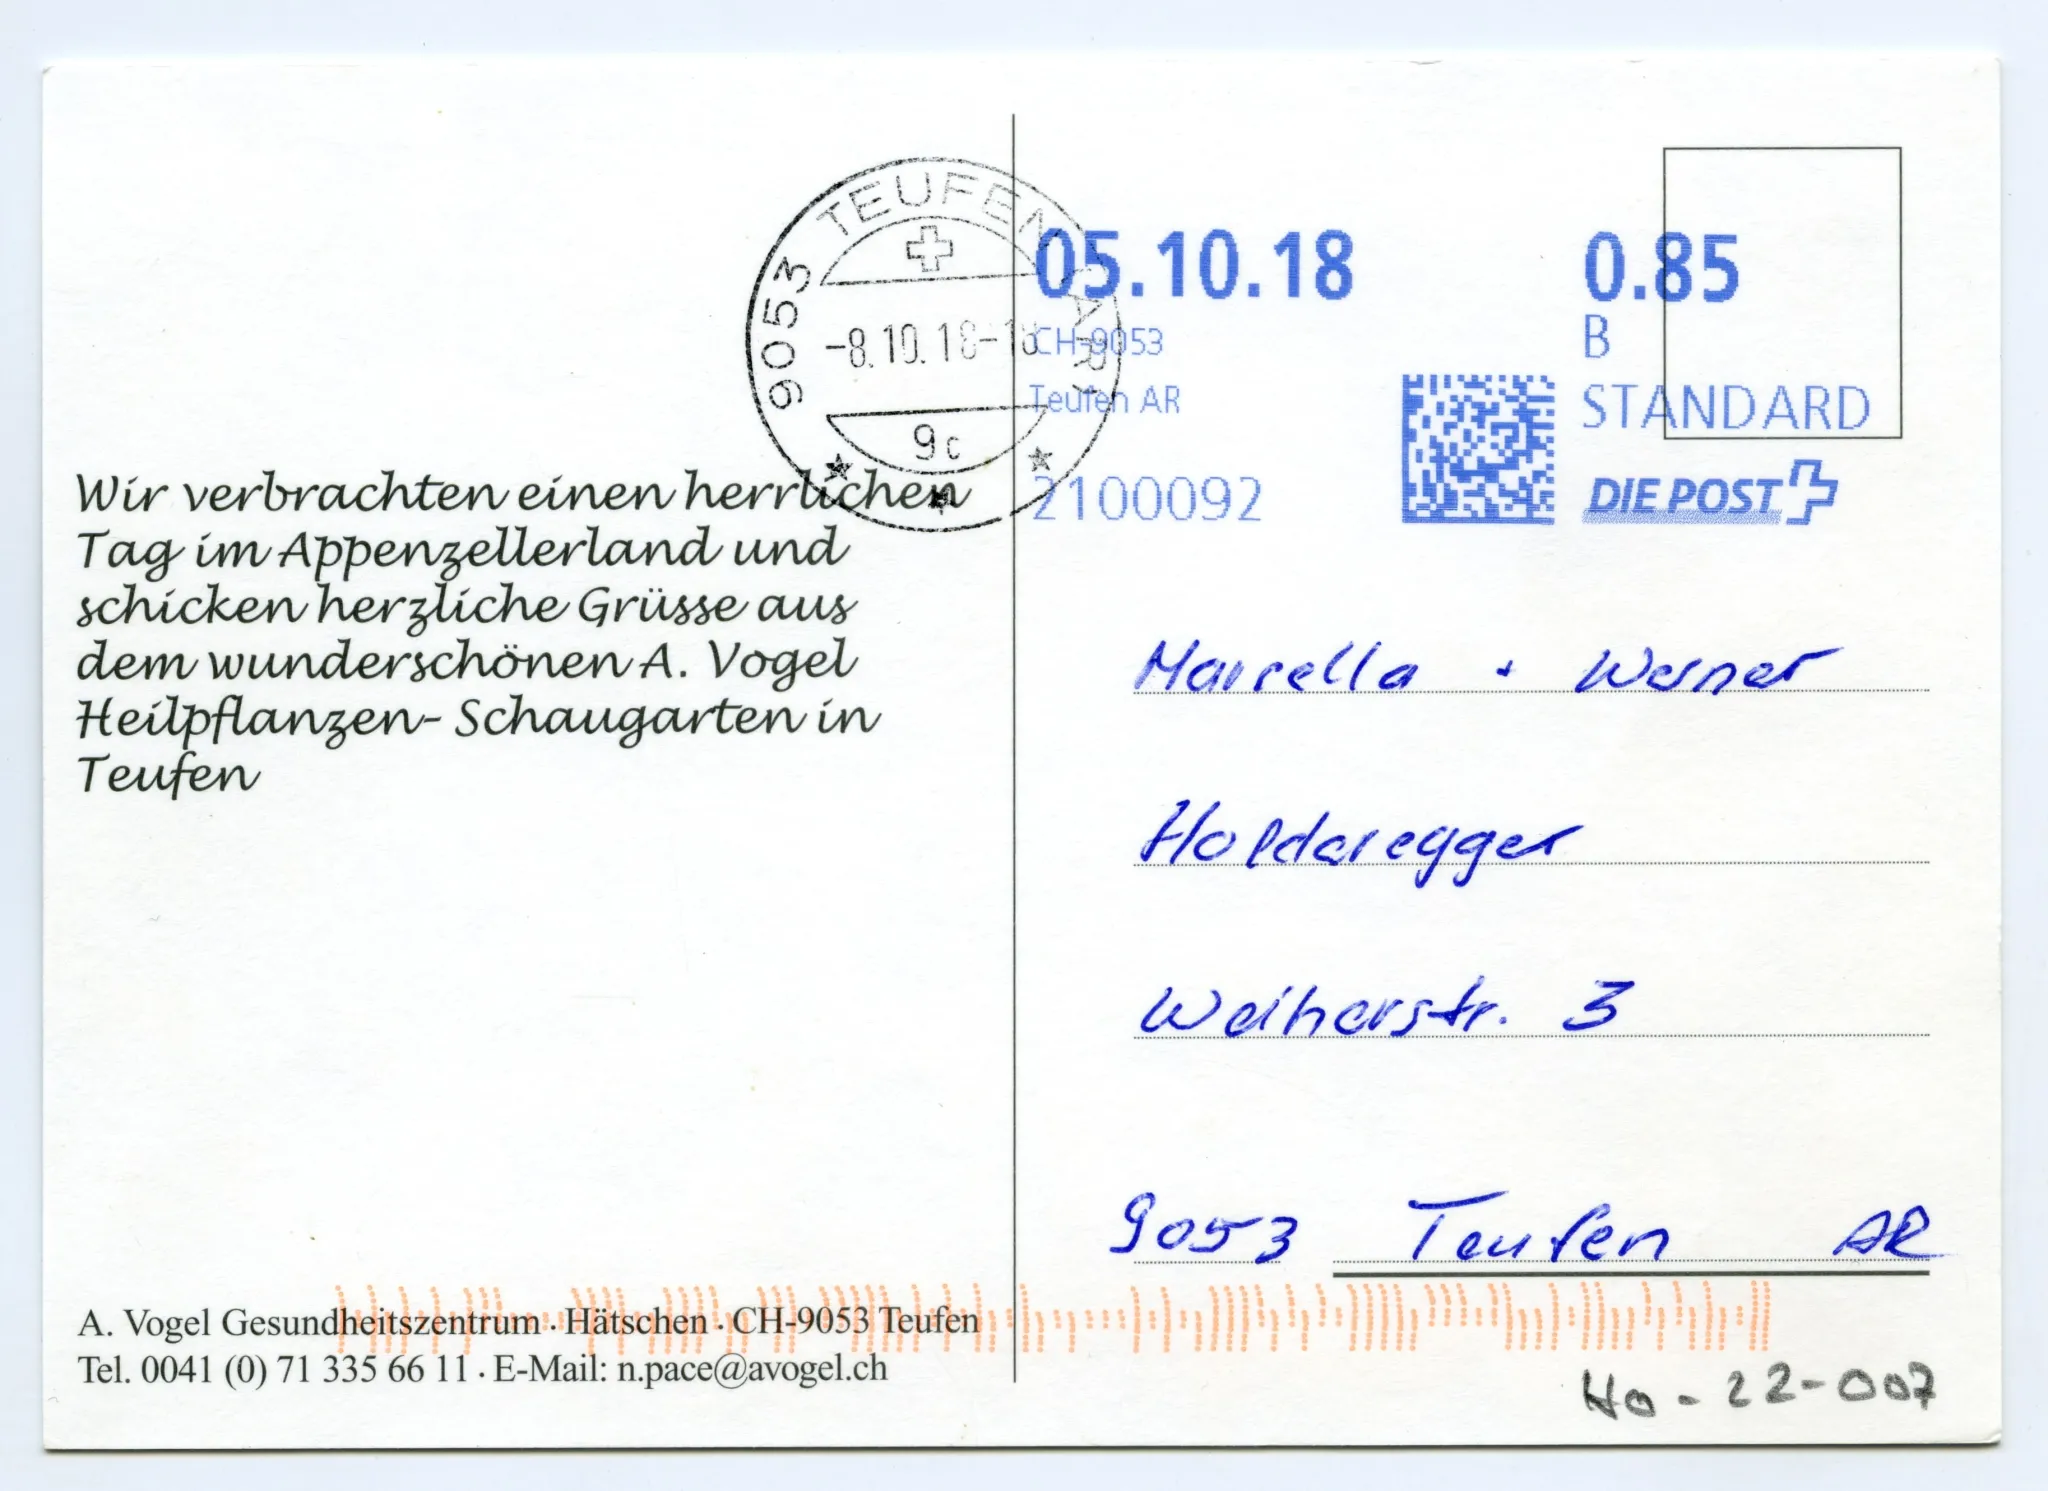 9053 TEUFEN (AR)
-8.10.18-18
9c
05.10.18
CH-9053
Teufen AR
2100092
0.85
B
STANDARD
DIE POST
Wir verbrachten einen herrlichen
Tag im Appenzellerland und
schicken herzliche Grüsse aus
dem wunderschönen A. Vogel
Heilpflanzen- Schaugarten in
Teufen
Marcella + Werner
Holderegger
Weiherstr. 3
9053 Teufen AR
A. Vogel Gesundheitszentrum · Hätschen · CH-9053 Teufen
Tel. 0041 (0) 71 335 66 11 · E-Mail: n.pace@avogel.ch
Ho-22-007